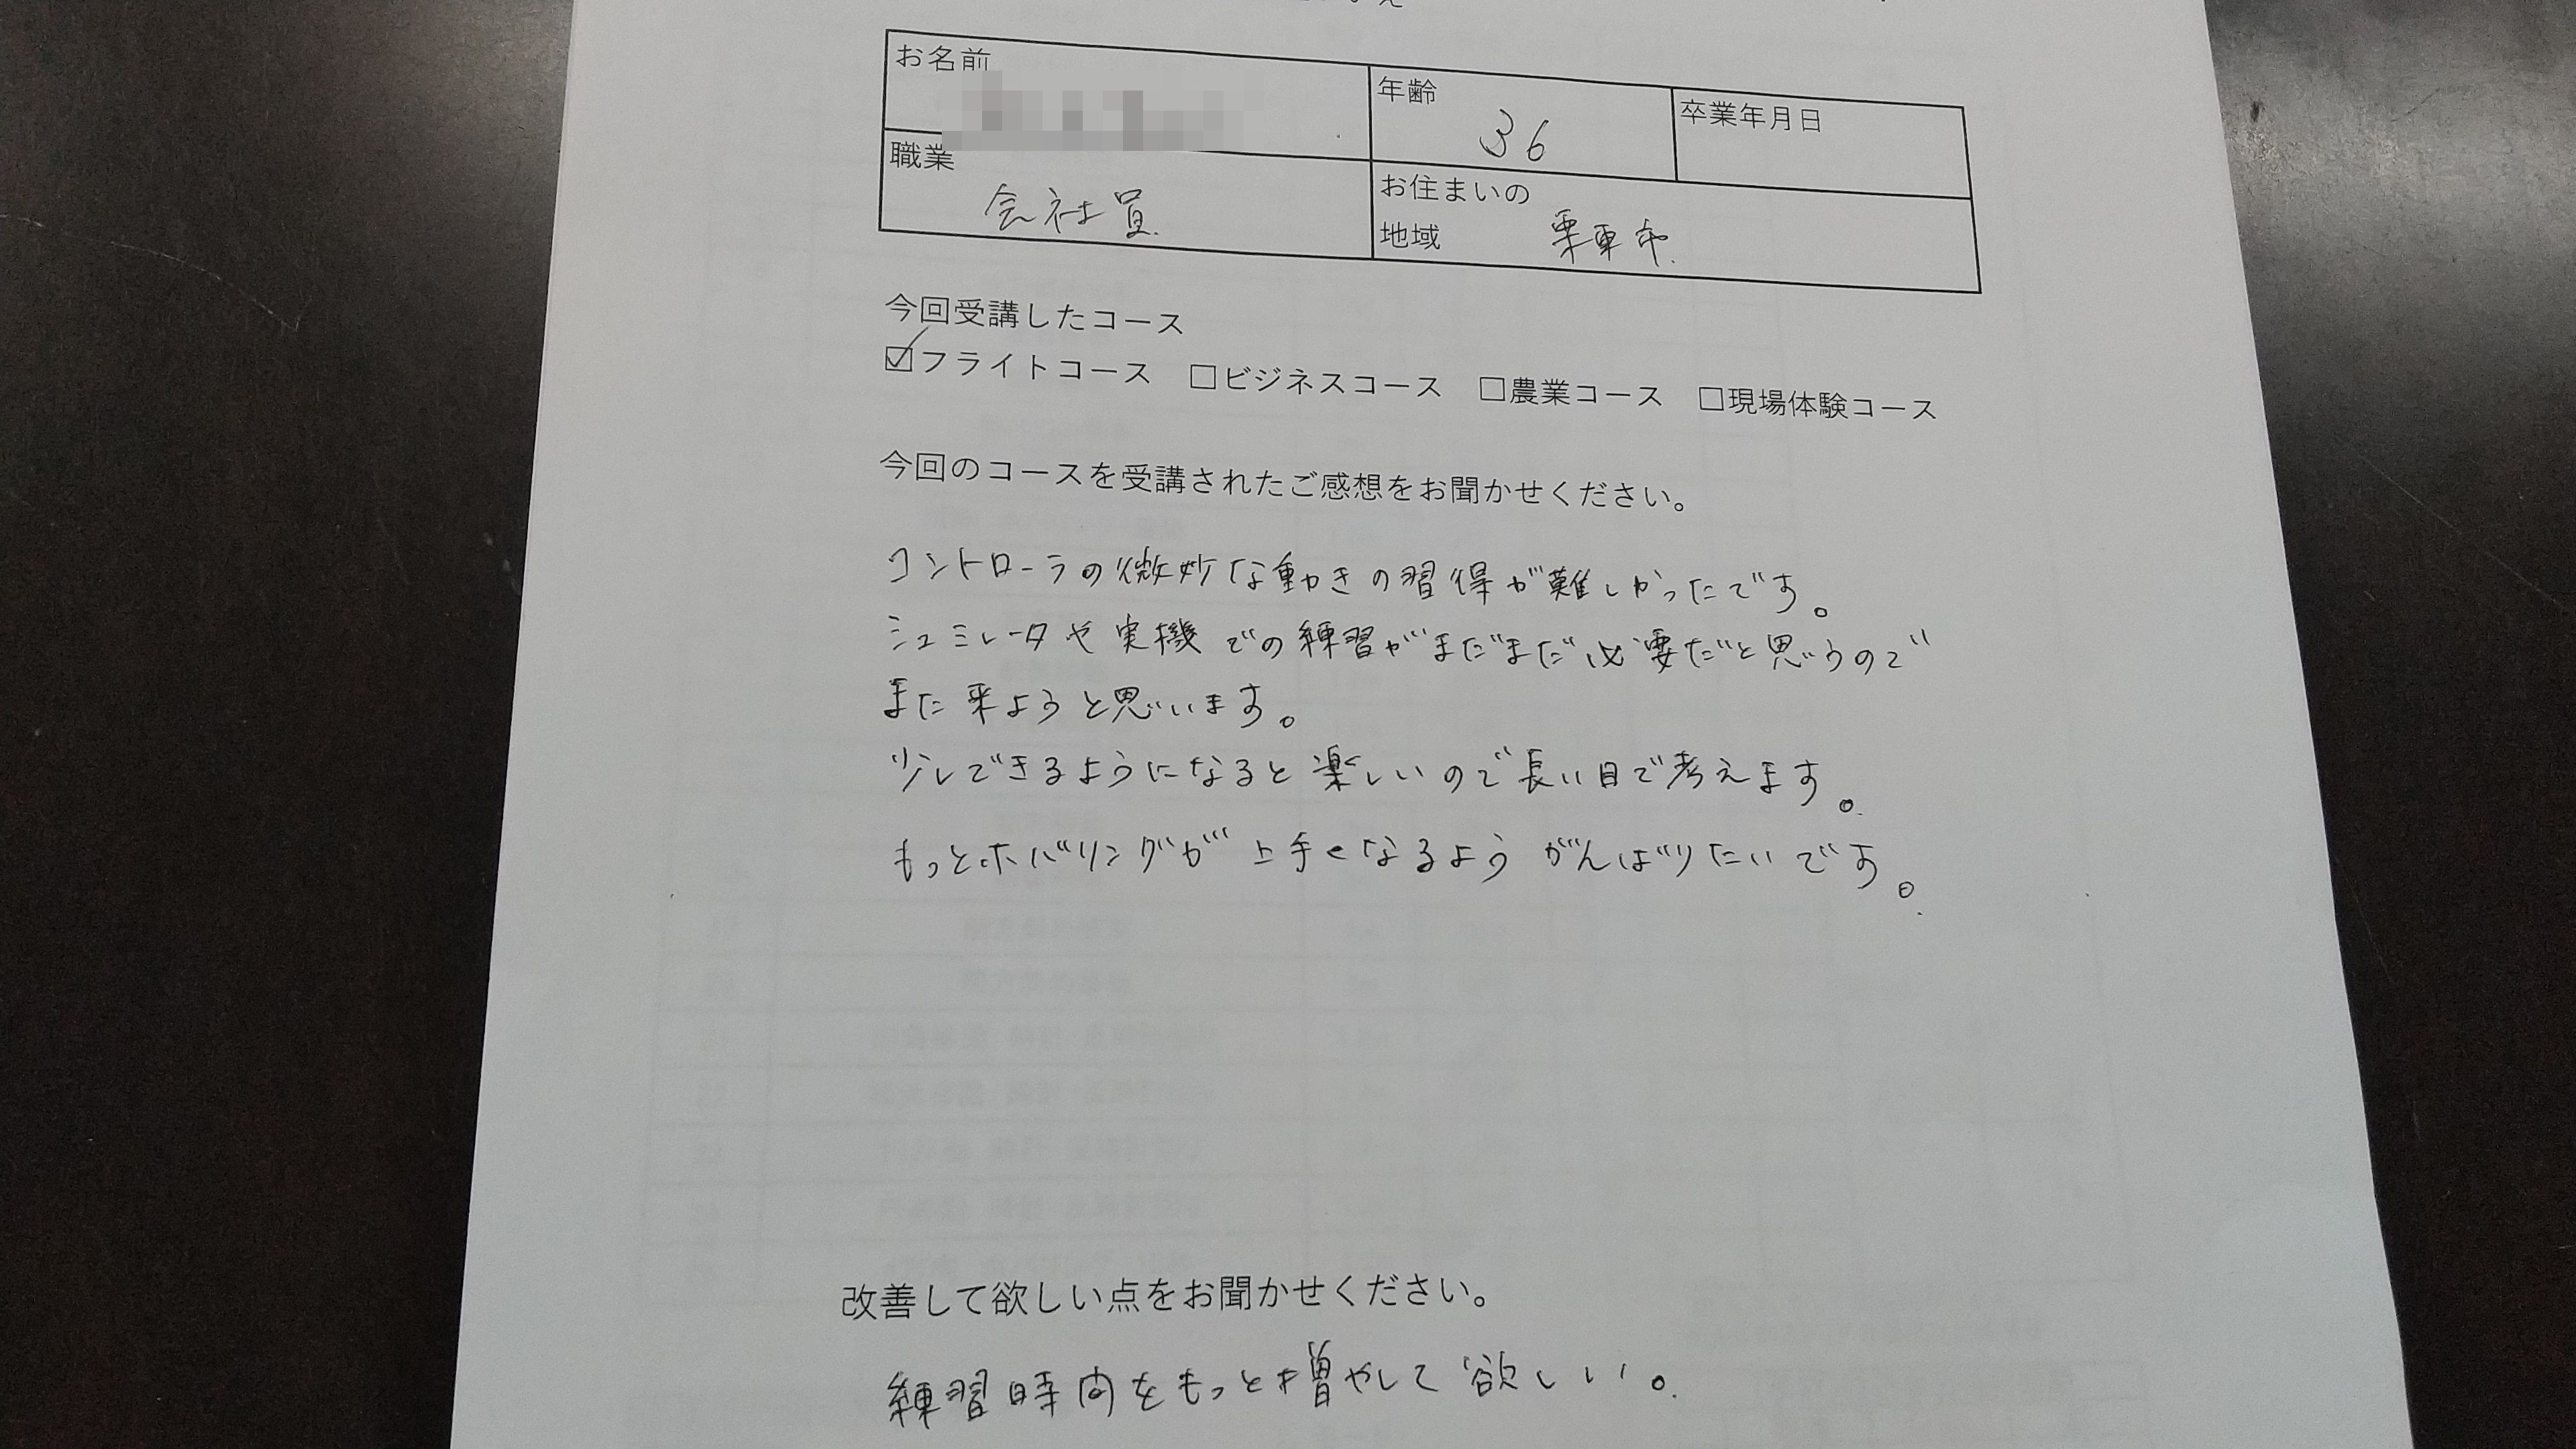 お名前
年齢
36
卒業年月日
職業
会社員
お住まいの
地域
栗東市
今回受講したコース
☑フライトコース □ビジネスコース □農業コース □現場体験コース
今回のコースを受講されたご感想をお聞かせください。
コントローラの微妙な動きの習得が難しかったです。
シュミレータや実機での練習がまだまだ必要だと思うので
また来ようと思います。
少しできるようになると楽しいので長い目で考えます。
もっとホバリングが上手くなるようがんばりたいです。
改善して欲しい点をお聞かせください。
練習時間をもっと増やして欲しい。